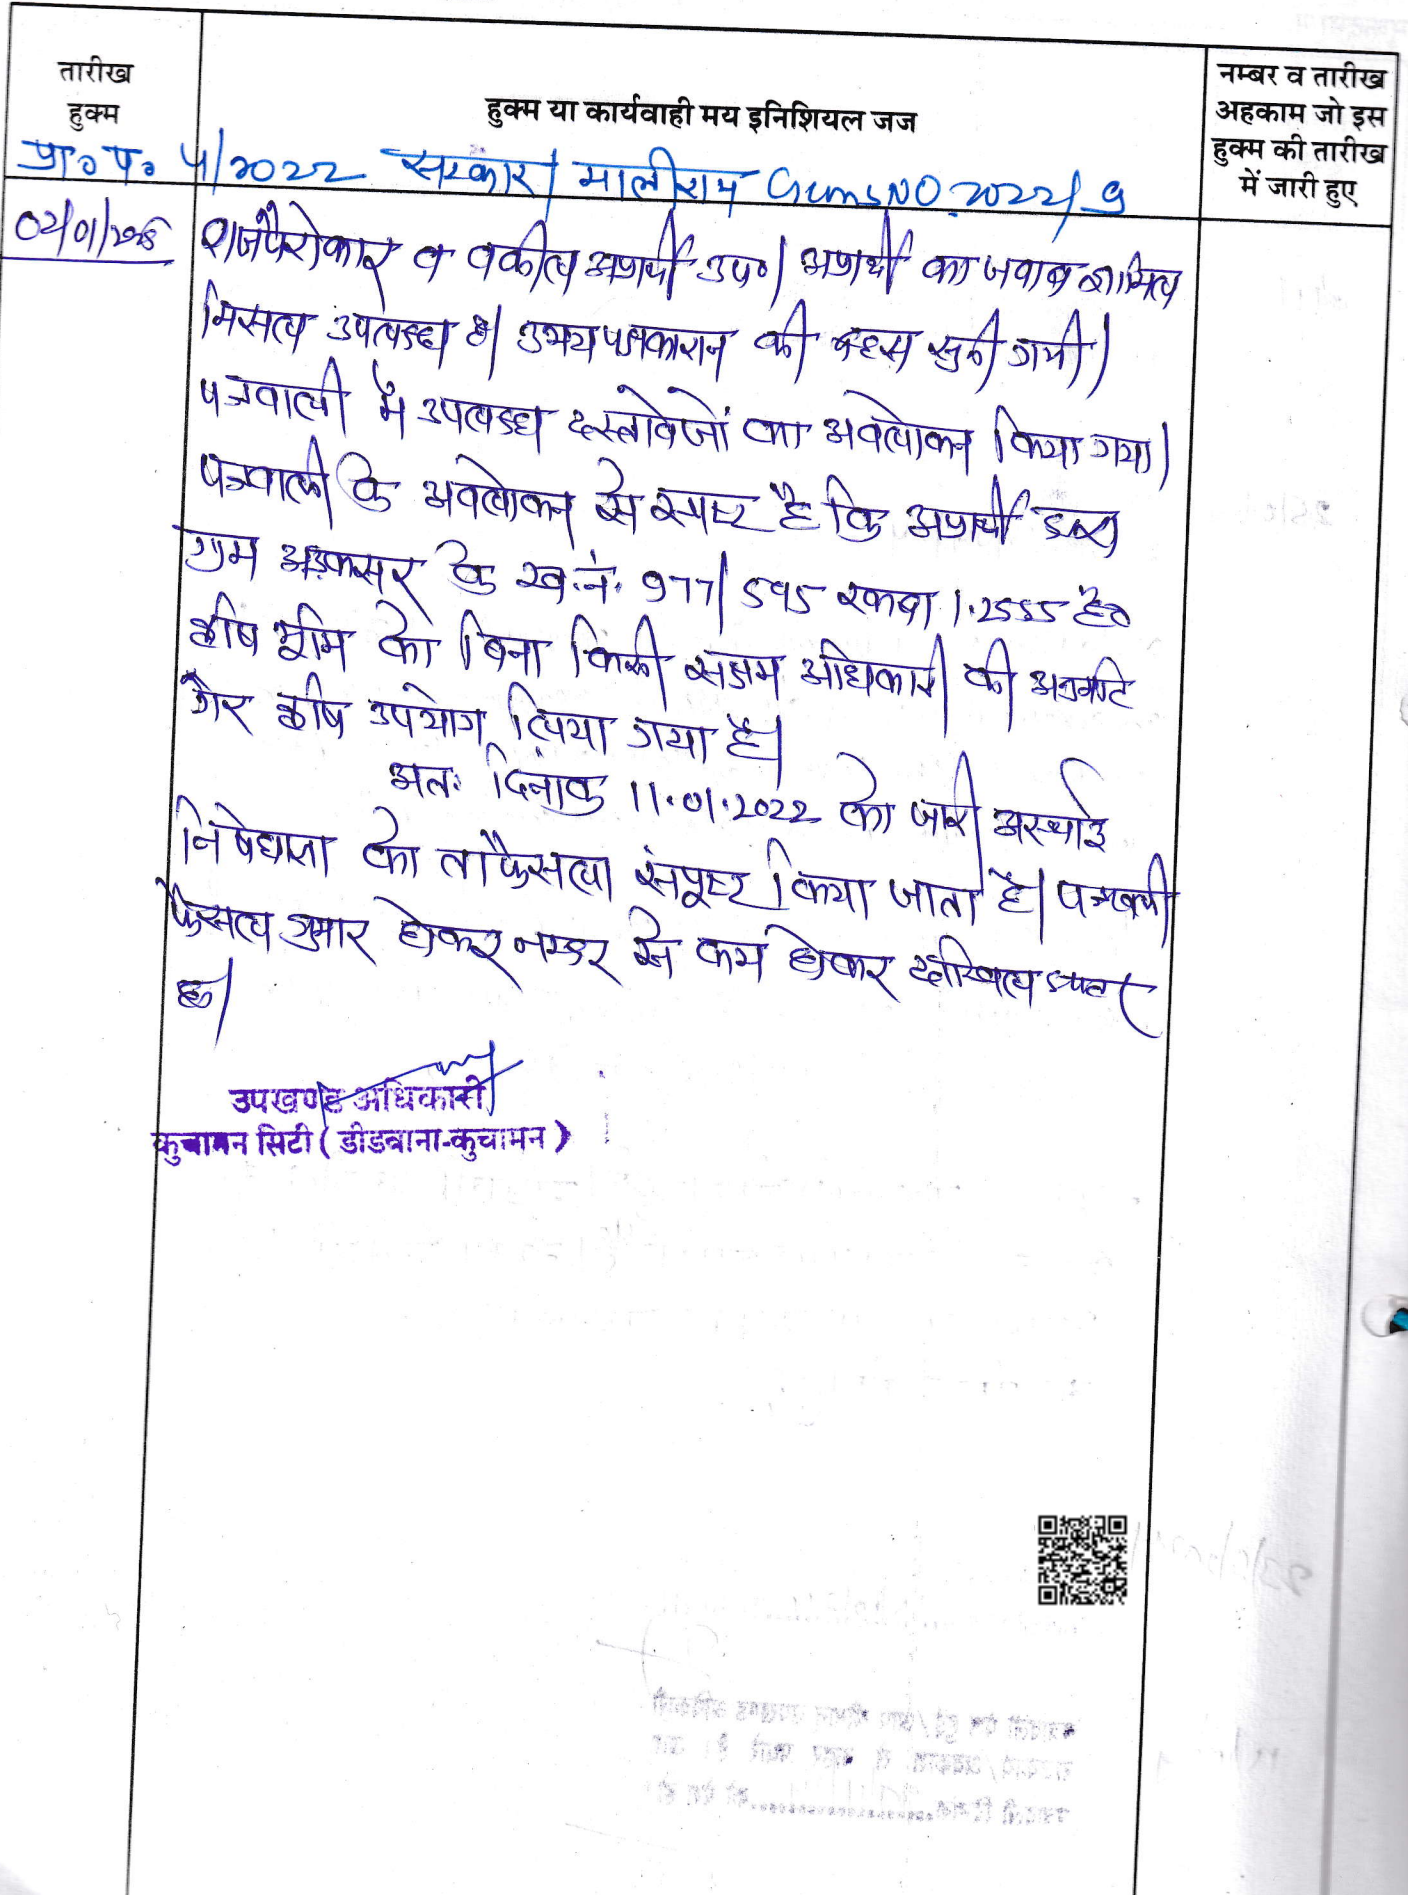 तारीख
हुक्म
हुक्म या कार्यवाही मय इनिशियल जज
नम्बर व तारीख
अहकाम जो इस
हुक्म की तारीख
में जारी हुए
प्रा० प० 4/2022 सरकार/मालीराम GcmsNO.2022/9
राजपैरोकार व वकील अप्रार्थी उप०। अप्रार्थी का जवाब शामिल
मिसल उपलब्ध है। उभयपक्षकारान की बहस सुनी गयी।
पत्रवाली में उपलब्ध दस्तावेजों का अवलोकन किया गया।
पत्रवाली के अवलोकन से स्पष्ट है कि अप्रार्थी द्वारा
ग्राम अड़कसर के ख.नं. 977/595 रकबा 1.2555 है०
कृषि भूमि को बिना किसी सक्षम अधिकारी की अनुमति
गैर कृषि उपयोग लिया गया है।
अतः दिनांक 11.01.2022 को जारी अस्थाई
निषेधाज्ञा को ताफैसला संपुष्ट किया जाता है। पत्रावली
फैसल शुमार होकर नम्बर से कम होकर दाखिल दफ्तर
हो।
उपखण्ड अधिकारी
कुचामन सिटी (डीडवाना-कुचामन)